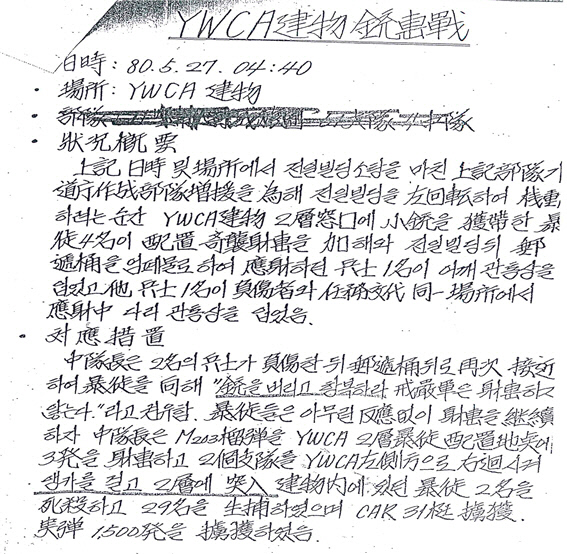 YWCA建物 銃擊戰
日時: 80.5.27. 04:40
· 場所: YWCA 建物
· 部隊
· 狀況槪要
上記 日時 및 場所에서 전일빌딩소탕을 마친 上記部隊가
道庁作戰部隊增援을 為해 전일빌딩을 左回転하여 機動
하려는 순간 YWCA建物 2層窓口에 小銃을 獲帶한 暴
徒4名이 配置 奇襲射擊을 加해와 전일빌딩뒤 郵
遞桶을 엄폐물로하여 應射하던 兵士1名이 어깨 관통상을
입었고 他 兵士1名이 負傷者와 任務交代 同一場所에서
應射中 다리 관통상을 입었음.
· 対應措置
中隊長은 2名의 兵士가 負傷한 뒤 郵遞桶뒤로 再次 接近
하여 暴徒을 向해 "銃을 버리고 항복하라 戒嚴軍은 射擊하지
않는다."라고 권유함. 暴徒들은 아무런 反應없이 射擊을 継續
하자 中隊長은 M203榴弾을 YWCA 2層暴徒 配置地点에
3発을 射擊하고 2個支隊을 YWCA左側方으로 右迴시켜
생가을 걸고 2層에 突入 建物內에 있던 暴徒 2名을
死殺하고 29名을 生捕하였으며 CAR 31梃 擄獲.
実弾 1,500発을 擄獲하였음.